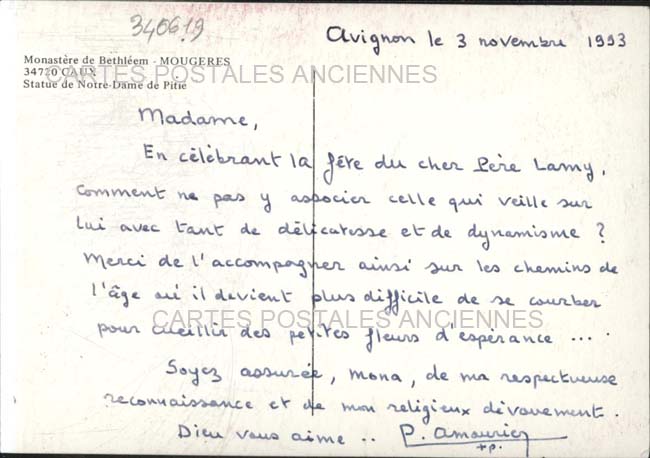 340619
Avignon le 3 novembre 1993
Monastère de Bethléem - MOUGERES
34720 CAUX
Statue de Notre-Dame de Pitié
CARTES POSTALES ANCIENNES
Madame,
En célébrant la fête du cher Père Lamy,
comment ne pas y associer celle qui veille sur
lui avec tant de délicatesse et de dynamisme ?
Merci de l'accompagner ainsi sur les chemins de
l'âge où il devient plus difficile de se courber
CARTES POSTALES ANCIENNES
pour cueillir des petites fleurs d'espérance ...
Soyez assurée, Mona, de ma respectueuse
reconnaissance et de mon religieux dévouement.
Dieu vous aime .. P. Amourier